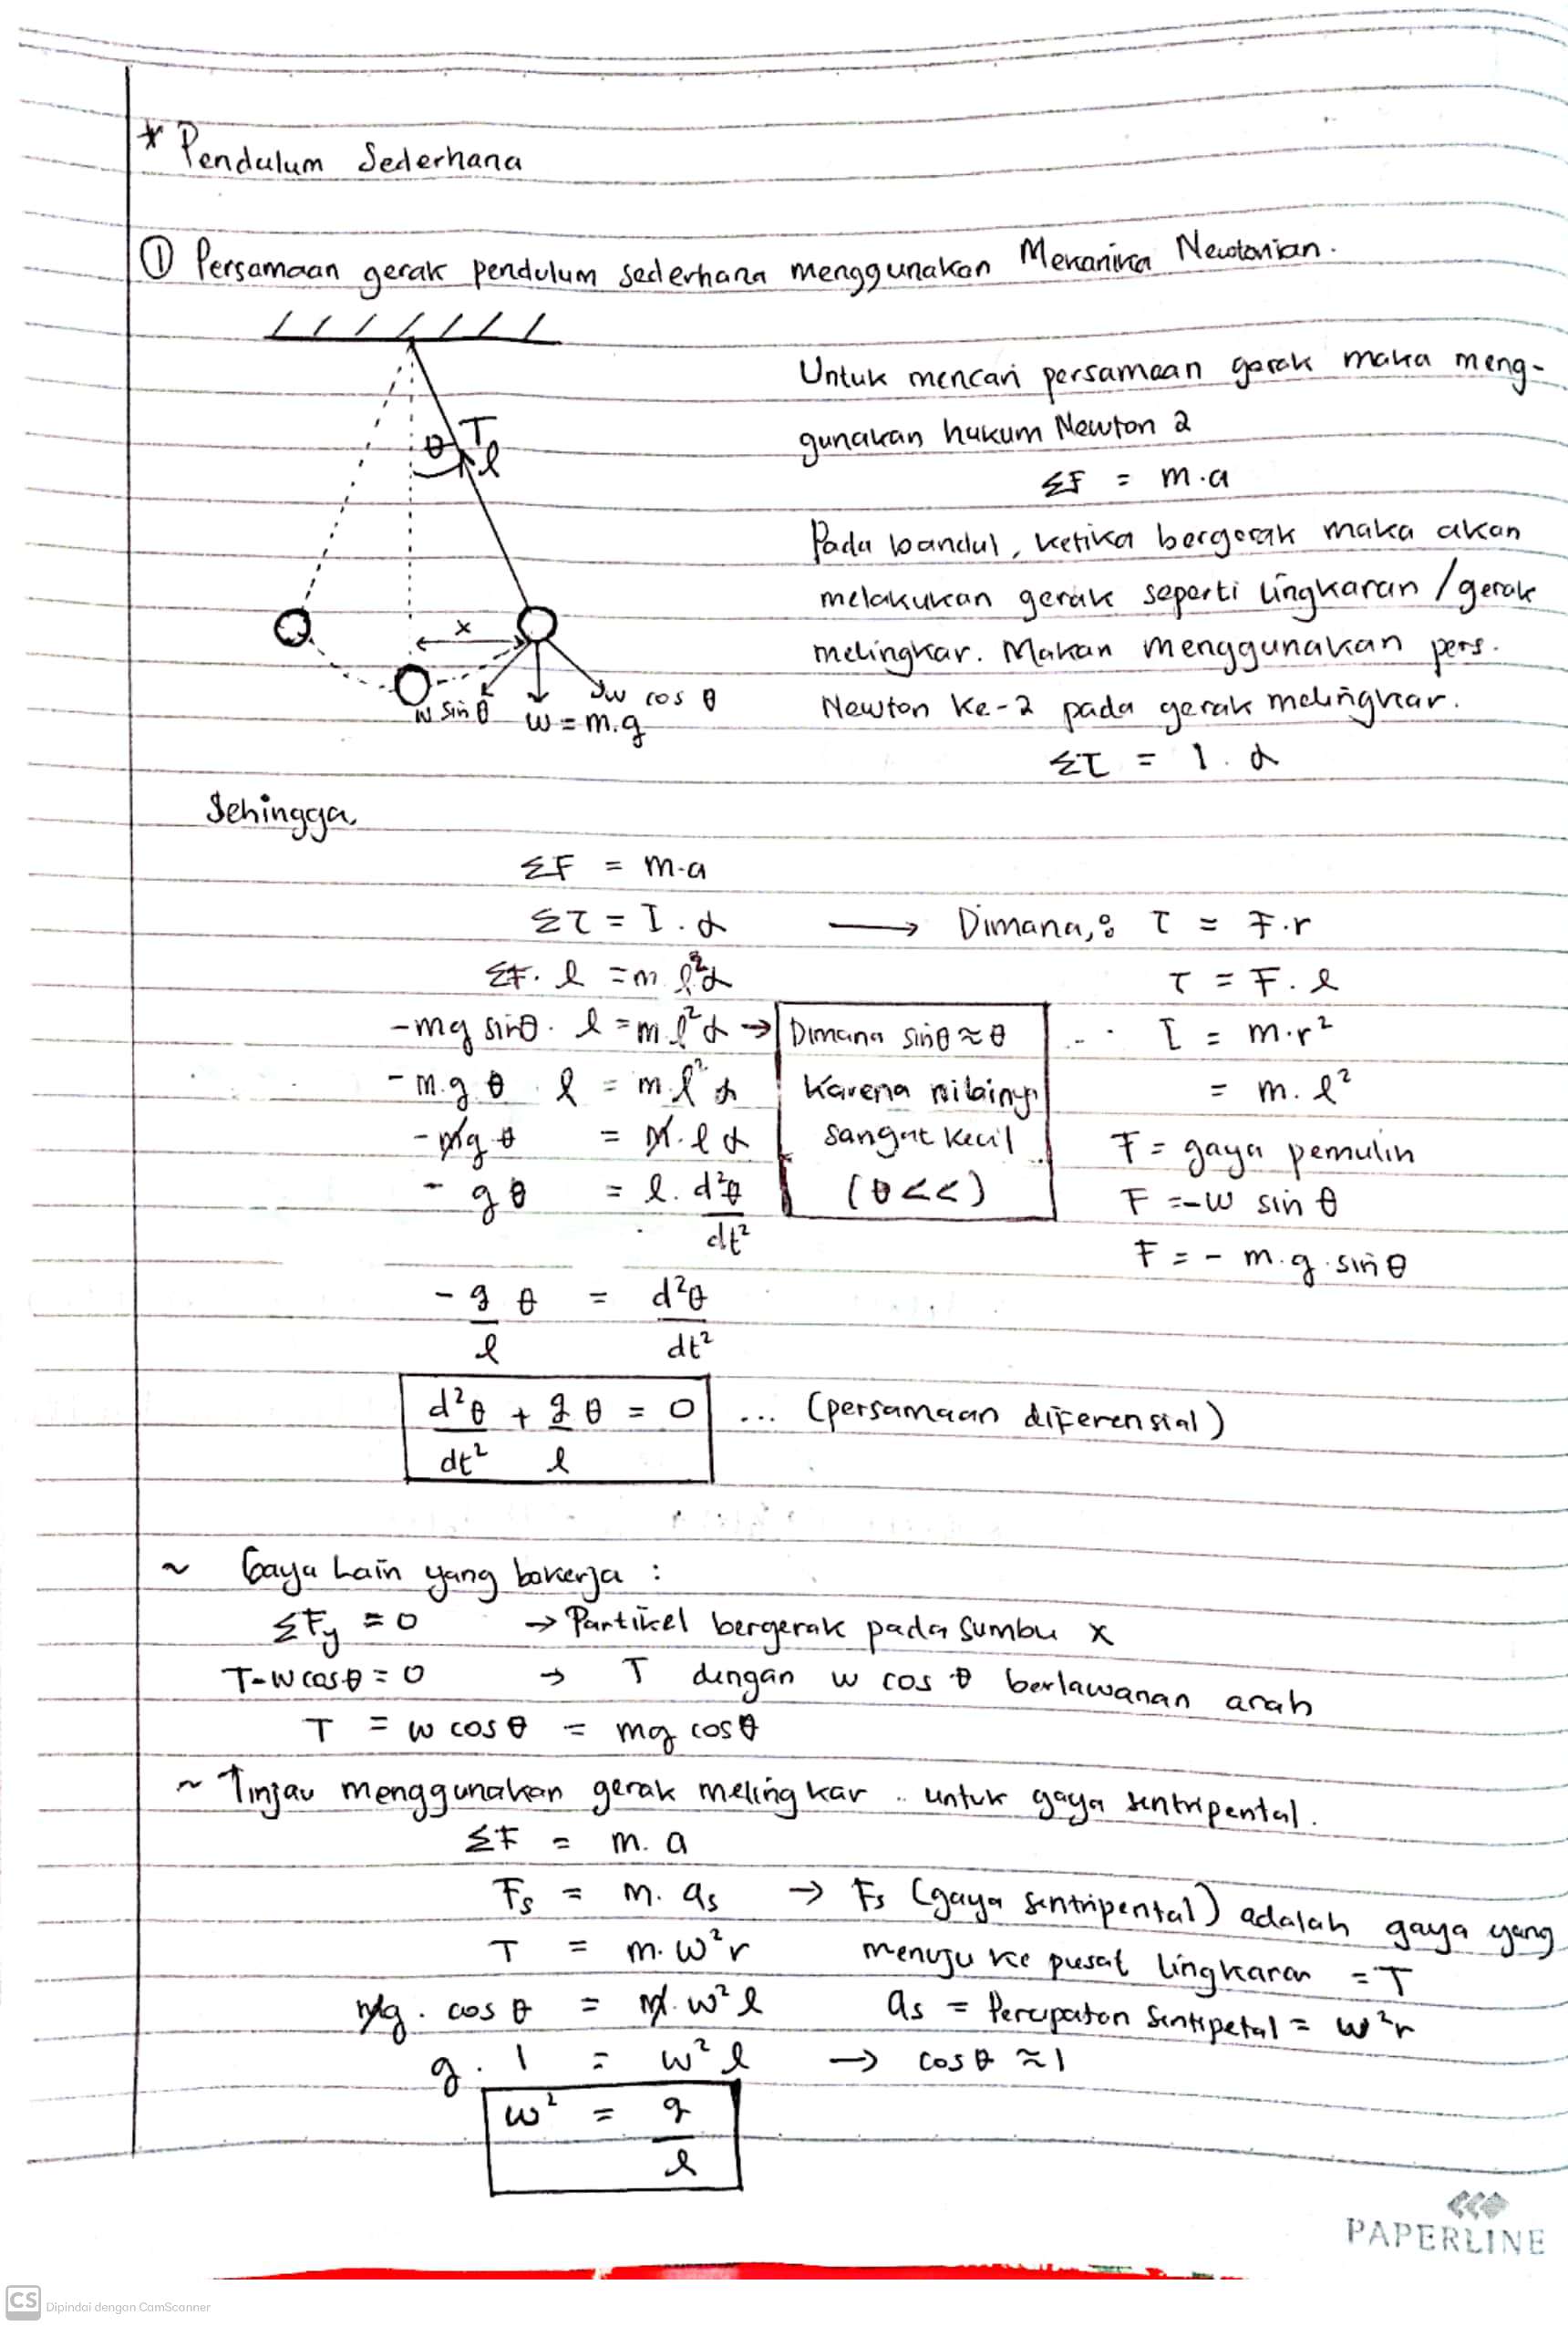 * Pendulum Sederhana
① Persamaan gerak pendulum sederhana menggunakan Mekanika Newtonian.
Untuk mencari persamaan gerak maka meng-
gunakan hukum Newton 2
ΣF = m.a
Pada bandul, ketika bergerak maka akan
melakukan gerak seperti lingkaran / gerak
melingkar. Makan menggunakan pers.
Newton ke-2 pada gerak melingkar.
Στ = I . α
θ T l
x
w sin θ w = m.g w cos θ
Sehingga,
ΣF = m.a
Στ = I . α → Dimana,: τ = F.r
ΣF. l = m l²α τ = F. l
-mg sinθ. l = m.l²α → Dimana sinθ ≈ θ I = m.r²
-m.g θ . l = m.l²α karena nilainya = m. l²
-mg θ = m.l α sangat kecil F = gaya pemulih
- g θ = l. d²θ/dt² (θ <<) F = -w sin θ
F = - m.g.sin θ
- g/l θ = d²θ/dt²
d²θ/dt² + g/l θ = 0 ... (persamaan diferensial)
~ Gaya Lain yang bekerja :
ΣFy = 0 → Partikel bergerak pada sumbu x
T-w cosθ = 0 → T dengan w cos θ berlawanan arah
T = w cos θ = mg cosθ
~ Tinjau menggunakan gerak melingkar .. untuk gaya sentripental.
ΣF = m. a
Fs = m. as → Fs (gaya sentripental) adalah gaya yang
T = m. w²r menuju ke pusat lingkaran = T
mg. cos θ = m. w² l as = Percepatan Sentripetal = w²r
g. 1 = w² l → cos θ ≈ 1
w² = g/l
PAPERLINE
CS Dipindai dengan CamScanner